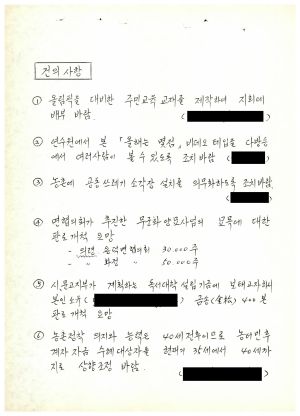 건의사항
① 올림픽을 대비한 주민교육 교재를 제작하여 지회에
배부 바람
② 연수원에서 본 「올해는 몇점」 비디오 테입을 다방송
에서 여러사람이 볼 수 있도록 조치바람
③ 농촌에 공동 쓰레기 소각장 설치를 의무화하도록 조치바람
④ 면협의회가 추진한 무궁화 묘목에 대한
판로 개척 요망
- 의령 면협의회 30.000주
- 〃 화정 〃 50.000주
⑤ 시·문고지부가 계획하는 독서대학 설립 기금에 보태고자하니
본인 소유 ( ) 금송(金松) 400본
판로 개척 요망
⑥ 농촌 정착 의지와 능력은 40세 전후이므로 농어민후
계자 자금 수혜 대상자를 현재의 35세에서 40세까
지로 상향조정 바람.